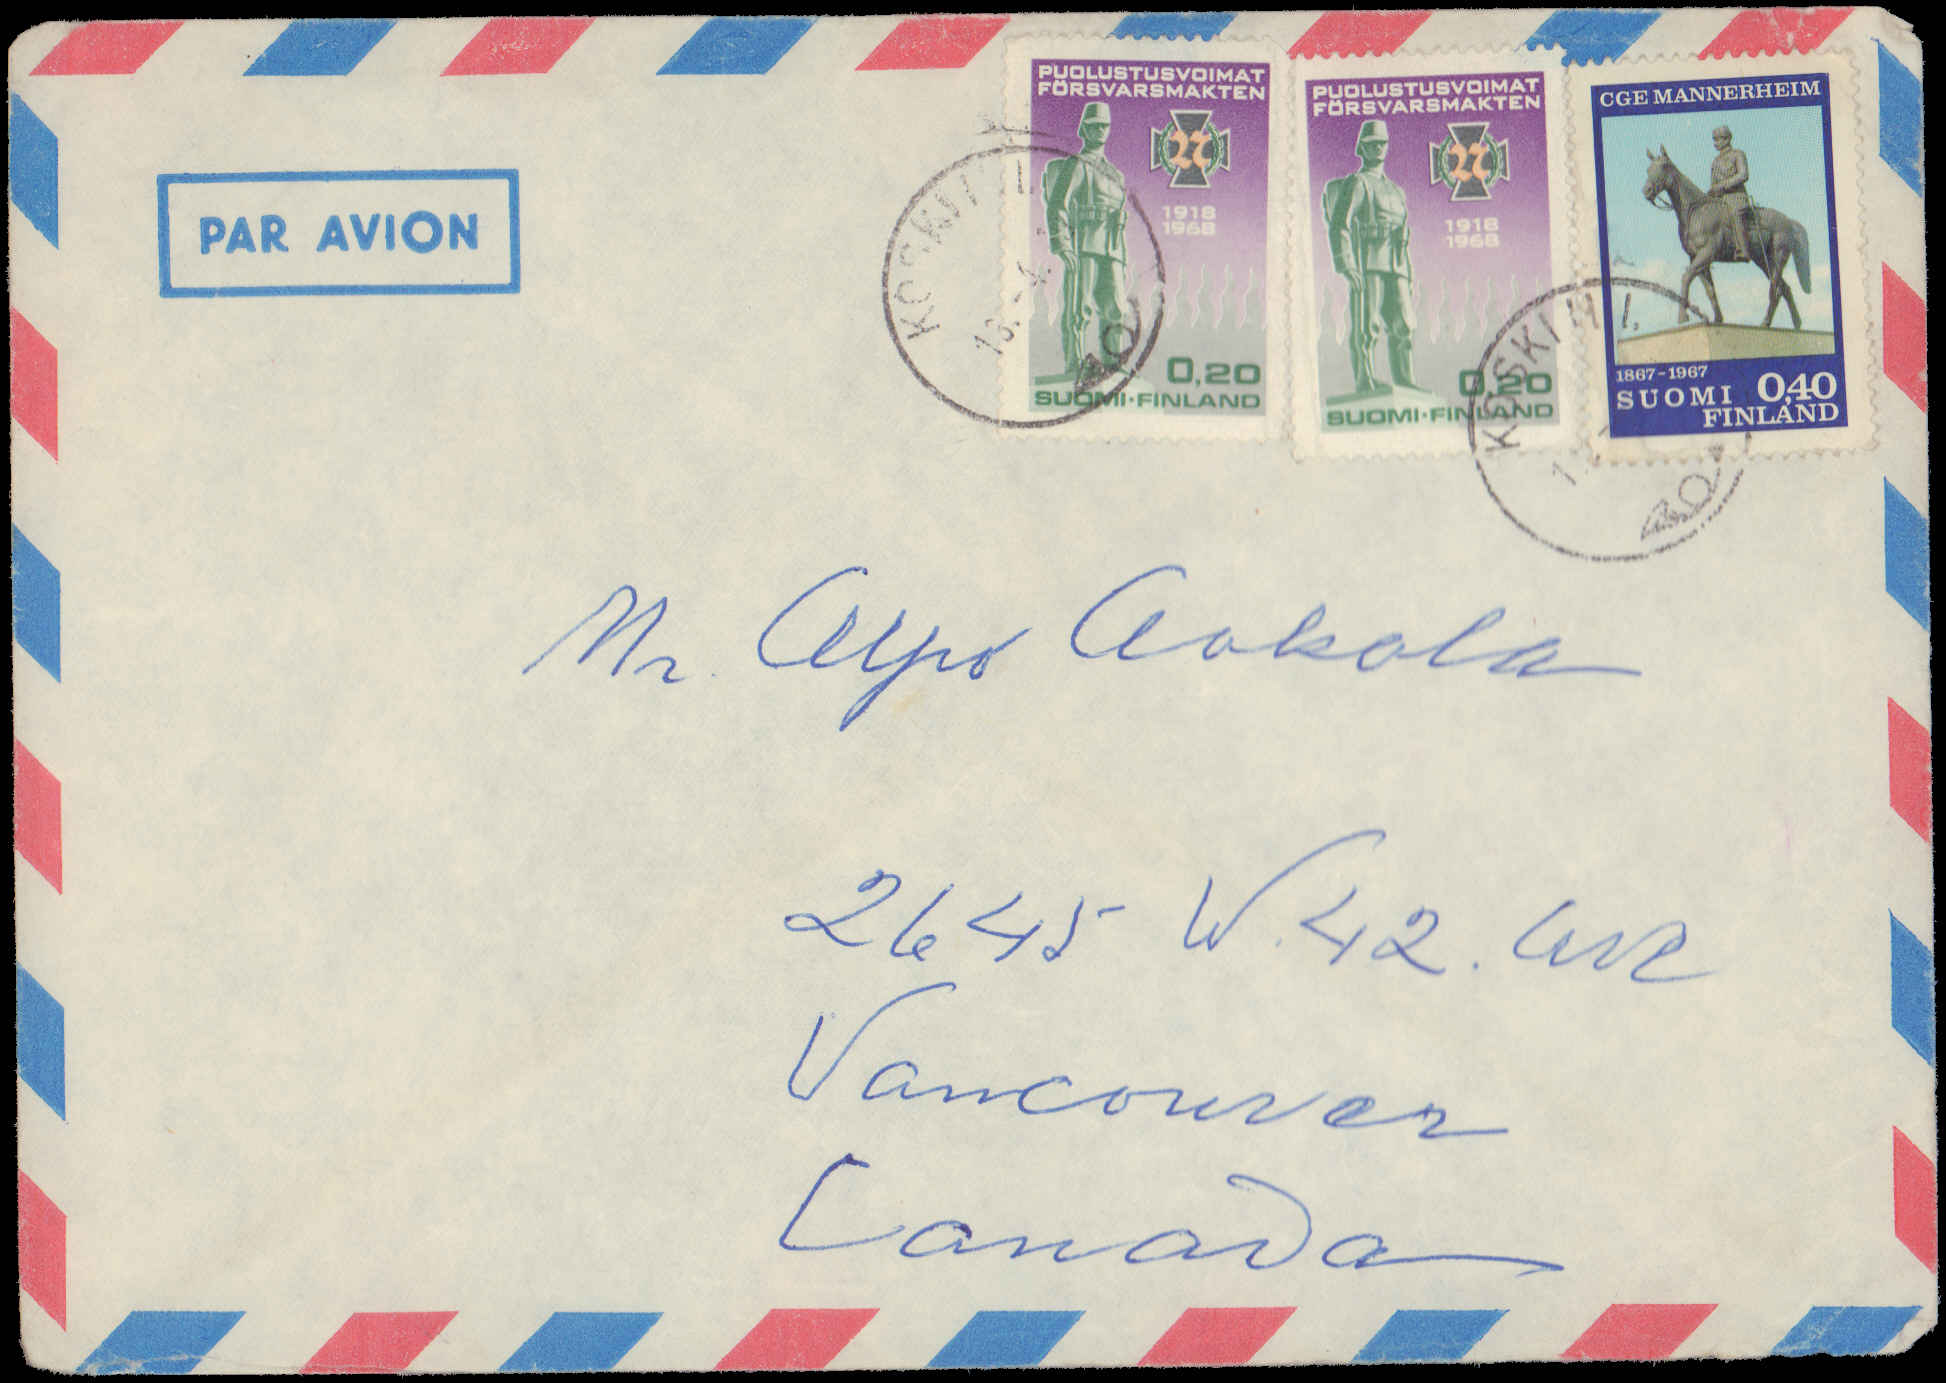 PAR AVION
PUOLUSTUSVOIMAT
FÖRSVARSMAKTEN
1918
1968
0,20
SUOMI·FINLAND
PUOLUSTUSVOIMAT
FÖRSVARSMAKTEN
1918
1968
0,20
SUOMI·FINLAND
CGE MANNERHEIM
1867-1967
SUOMI 0,40
FINLAND
KOSKI H l.
KOSKI H l.
Mr. Alpo Aokola
2645 W. 42. Ave
Vancouver
Canada